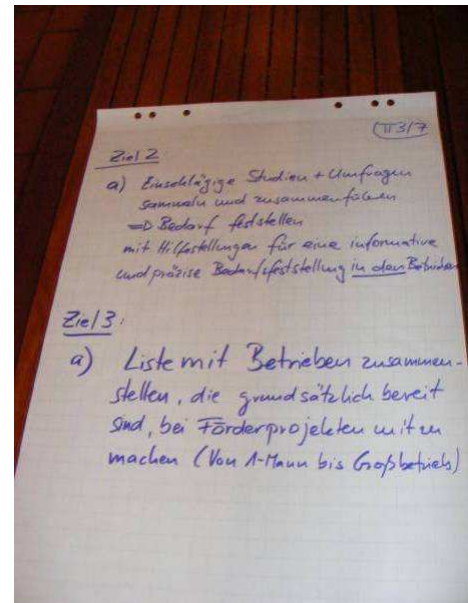 π 3/7
Ziel 2
a) Einschlägige Studien + Umfragen
sammeln und zusammenführen
=> Bedarf feststellen
mit Hilfestellungen für eine informative
und präzise Bedarfsfeststellung in den Betrieben
Ziel 3:
a) Liste mit Betrieben zusammen-
stellen, die grundsätzlich bereit
sind, bei Förderprojekten mit zu
machen (Von 1-Mann bis Großbetrieb)